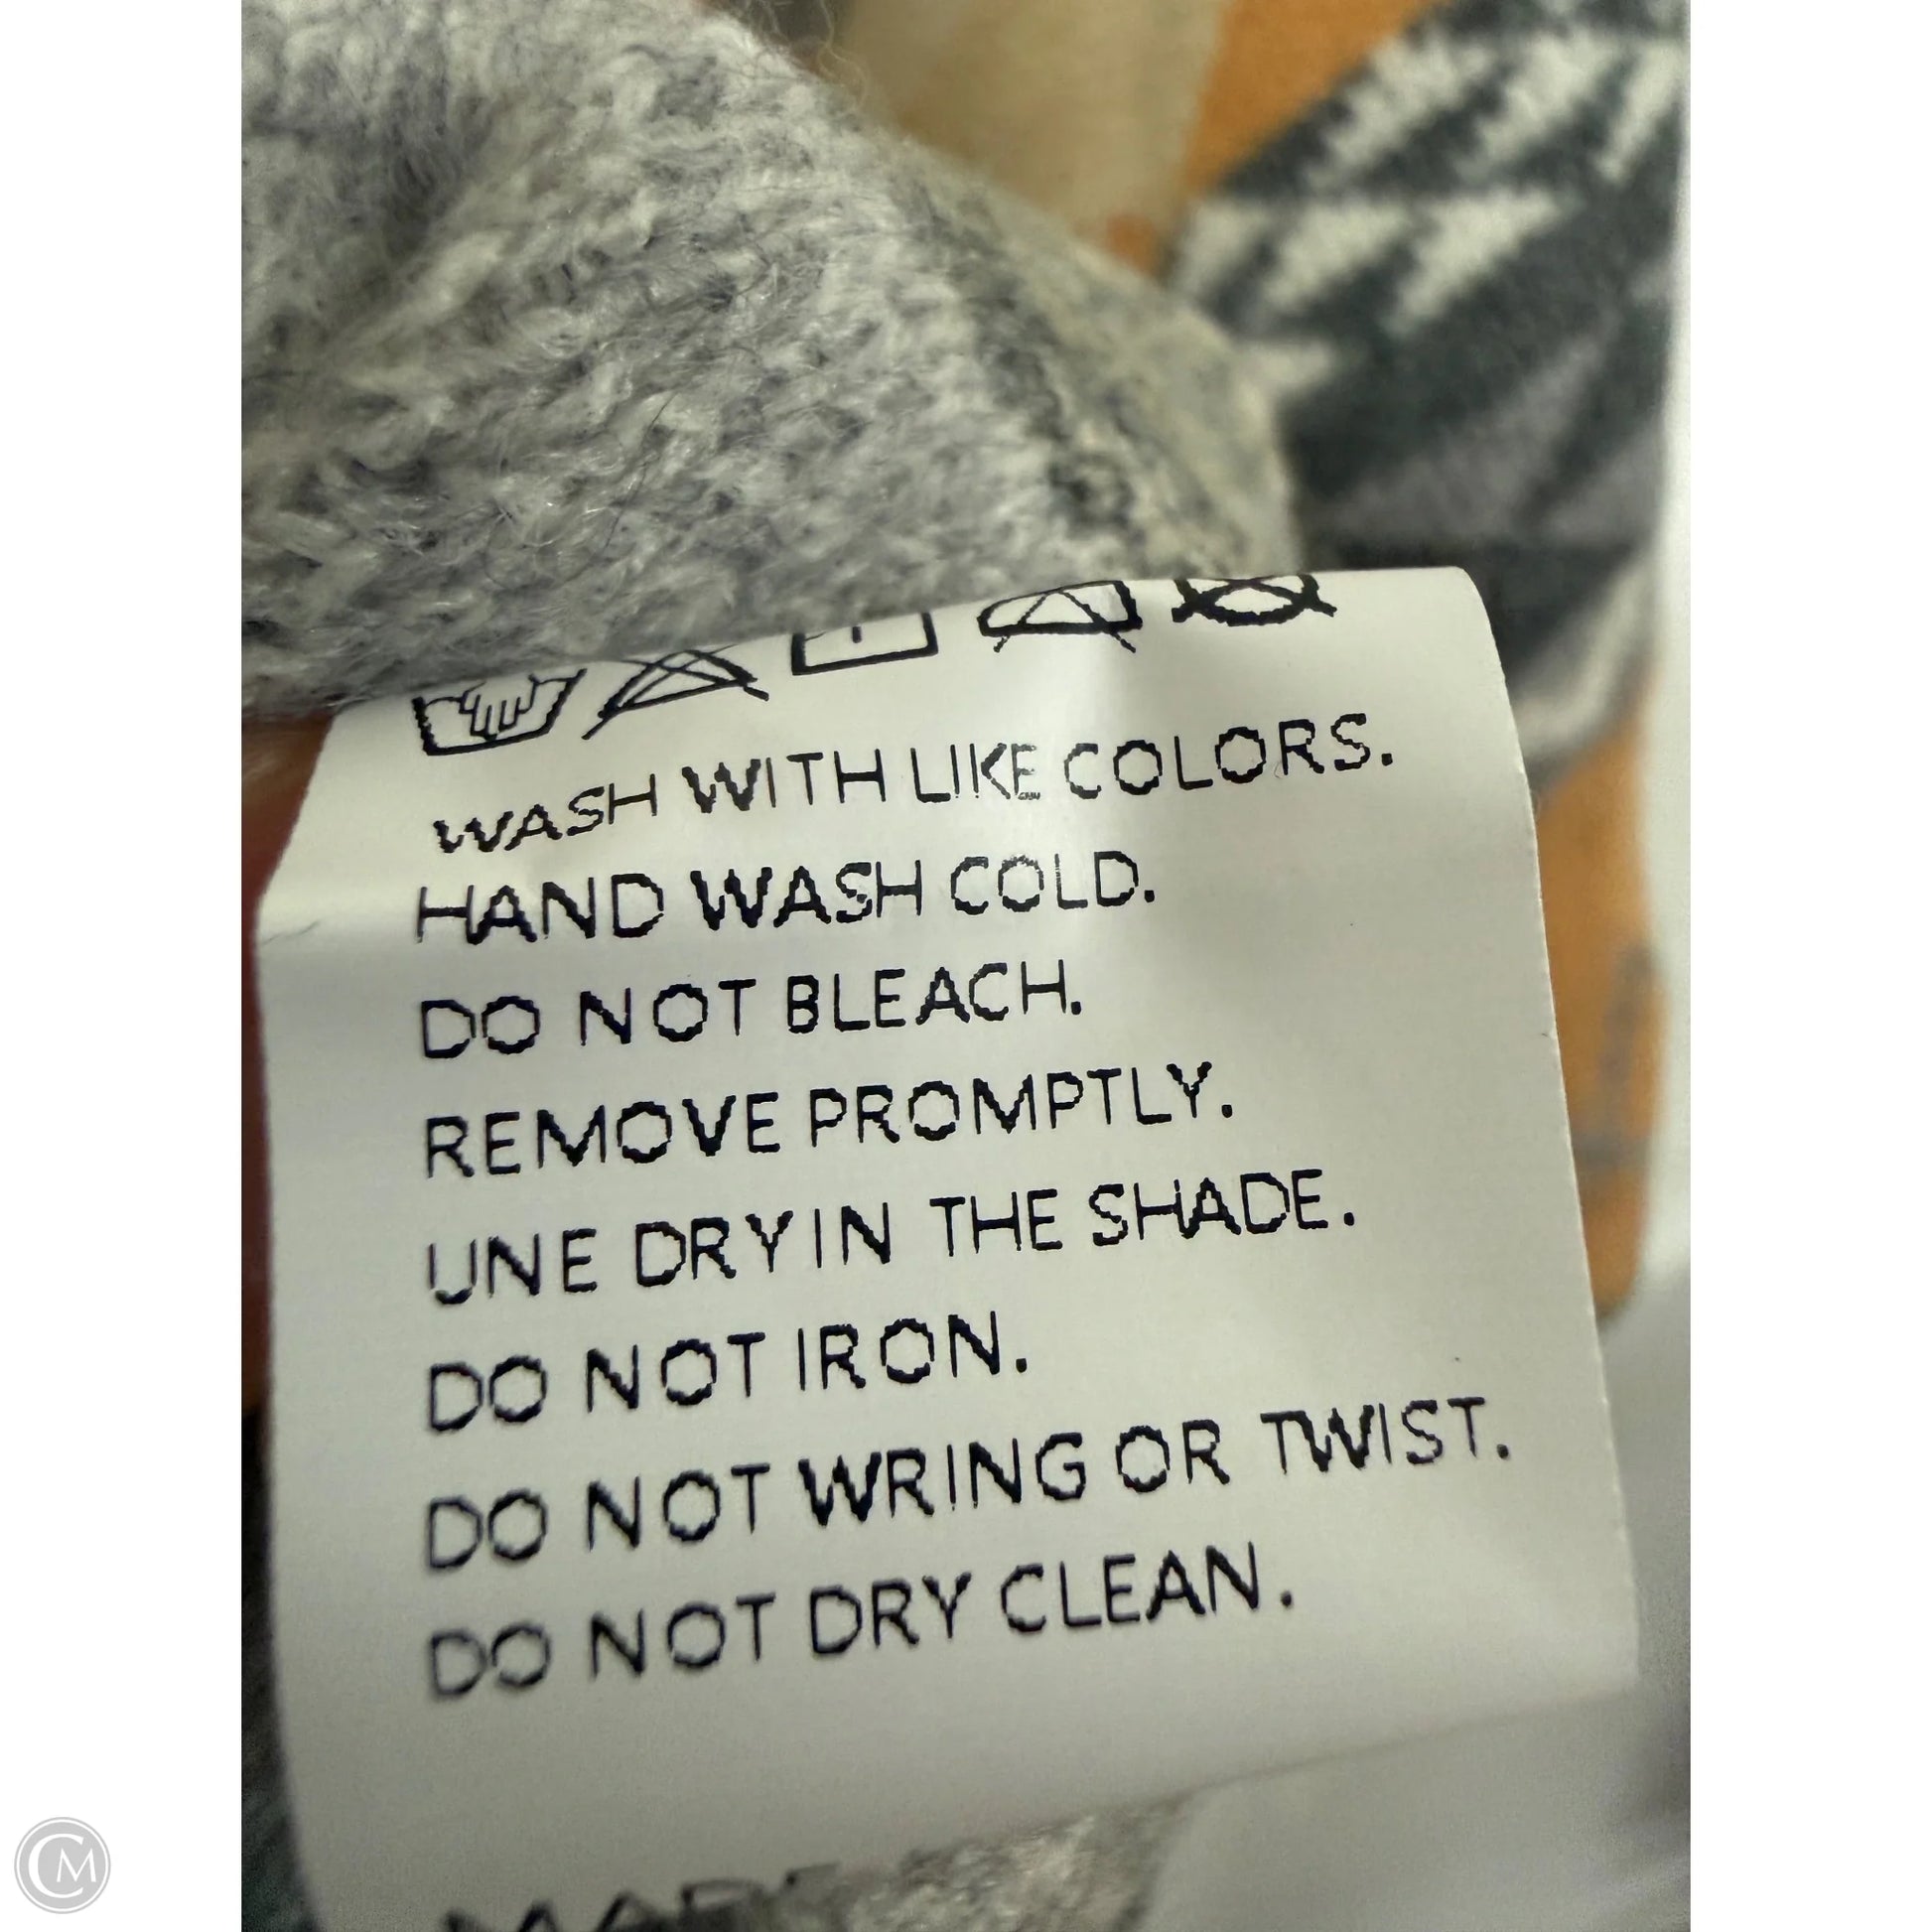 WASH WITH LIKE COLORS.
HAND WASH COLD.
DO NOT BLEACH.
REMOVE PROMPTLY.
UNE DRY IN THE SHADE.
DO NOT IRON.
DO NOT WRING OR TWIST.
DO NOT DRY CLEAN.
CM